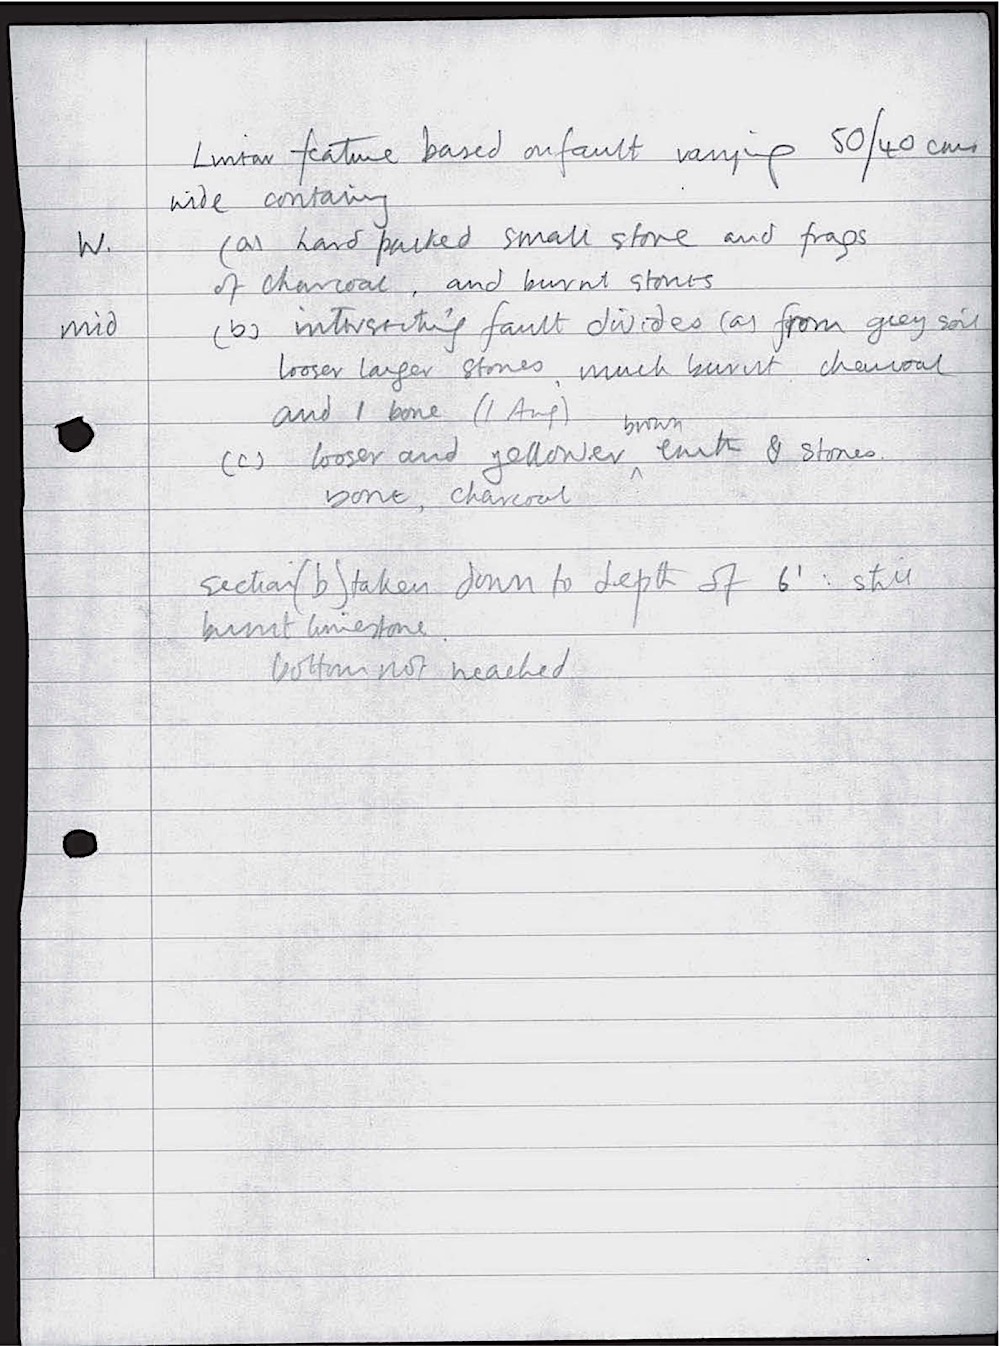 Linear feature based on fault varying 50/40 cms
wide containing
W. (a) hard packed small stone and frags
of charcoal, and burnt stones
mid (b) intersecting fault divides (a) from grey soil
looser larger stones, much burnt charcoal
and 1 bone (1 Aug)
brown
(c) looser and yellower ^ earth & stones.
bone, charcoal
section (b) taken down to depth of 6' : still
burnt limestone.
bottom not reached